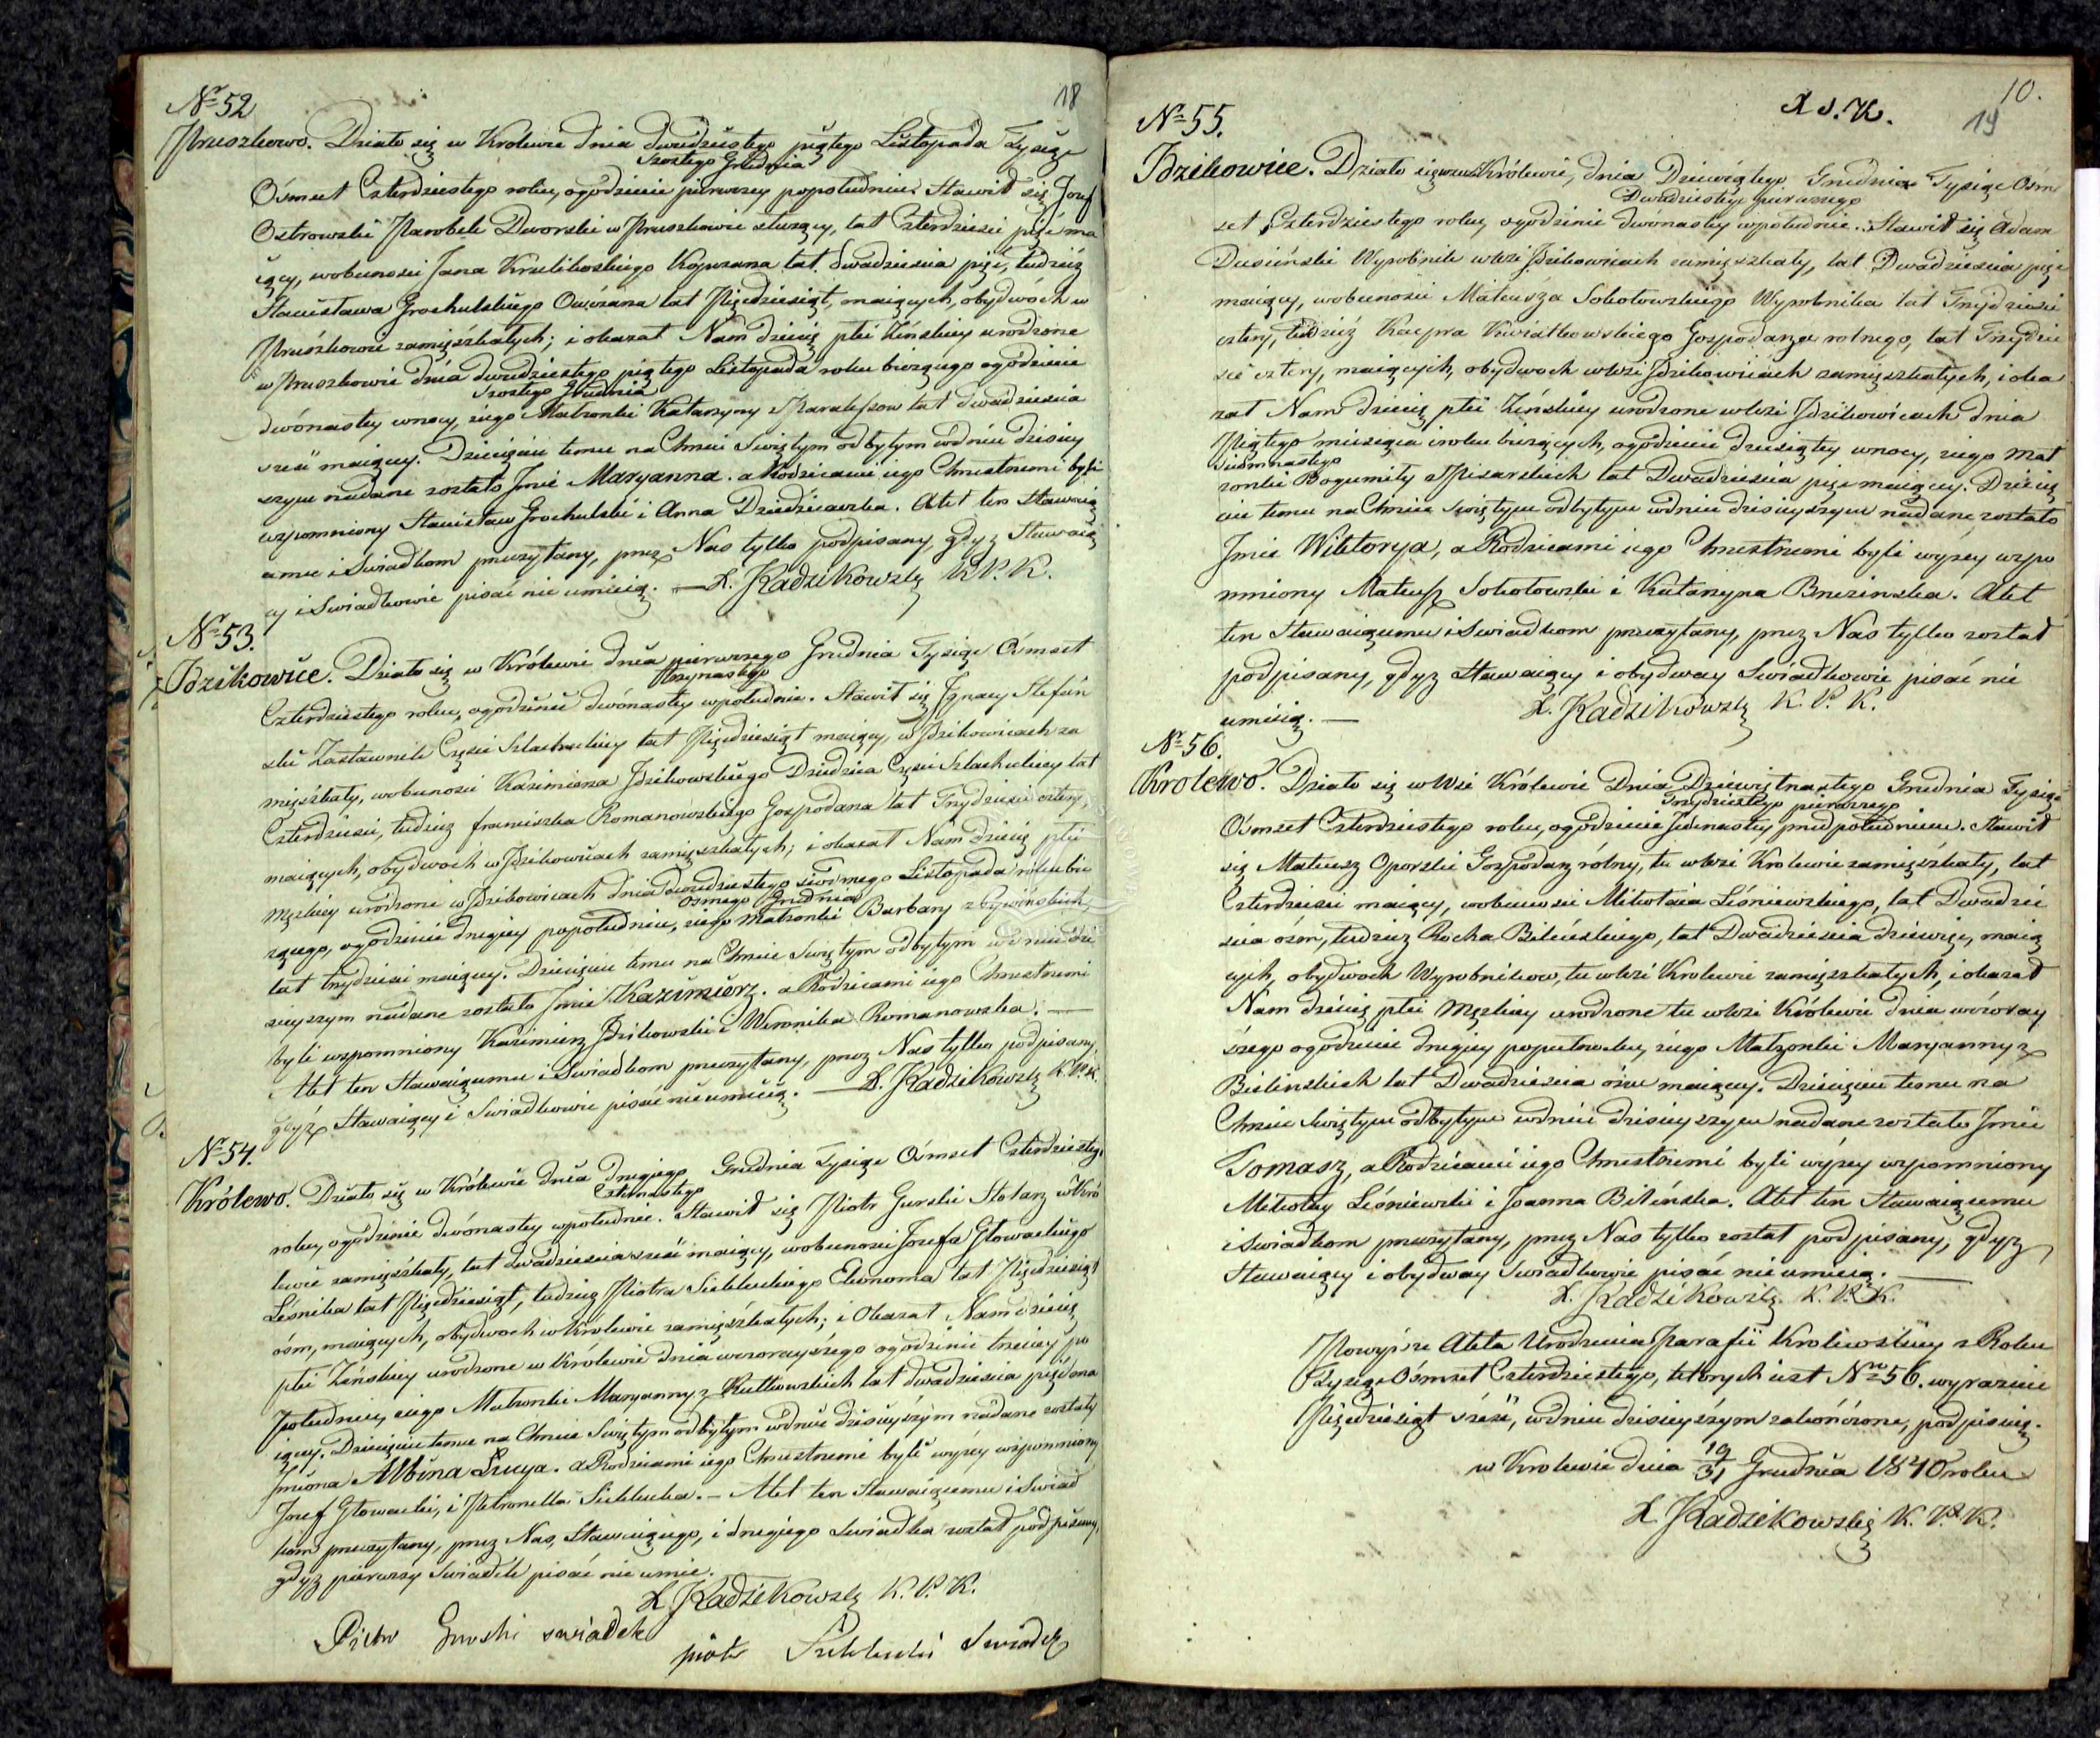 18
Nº 52
Pruszkowo. Działo się w Krolewie dnia dwudziestego piątego Listopada Tysiąc
Szostego Grudnia
Ośmset Czterdziestego roku, ogodzinie pierwszey popołudniu. Stawił się Jozef
Ostrowski Parobek Dworski w Pruszkowie służący, lat Czterdzieści pięć ma
iący, wobecności Jana Krulikoskiego lat dwadzieścia pięć, tudzież
Stanisława Grochulskiego Owczarza lat Pięćdziesiąt, maiących, obydwóch w
Pruszkowie zamięszkałych; i okazał Nam dziecię płci Żeńskiey urodzone
w Pruszkowie dnia dwudziestego piątego Listopada roku bieżącego ogodzinie
Szostego Grudnia
dwónastey wnocy, ziego Małzonki Katarzyny z lat dwadzieścia
sześć maiącey. Dziecięciu temu na Chrzcie Swiętym odbytym wdniu dzisiey
szym nadane zostało Jmie Maryanna. a Rodzicami iego Chrzestnemi byli
wzpomniony Stanisław Grochulski i Anna Dziedzicoska. Akt ten Stawaią
cemu i Swiadkom przeczytany, przez Nas tylko podpisany, gdyż Stawaią
cy i Swiadkowie pisać nie umieią. — X. Kadzikowski K. P. K.
Nº 53.
Jdzikowice. Działo się w Królewie dnia pierwszego Grudnia Tysiąc Ośmset
Trzynastego
Czterdziestego roku, ogodzinie dwónastey wpołudnie. Stawił się Jgnacy Stefań
ski Zastawnik Częsci Szlacheckiey lat Pięćdziesiąt maiący, w Jdzikowicach za
mięszkały, wobecności Kazimierza Jdzikowskiego Dziedzica Częsci Szlacheckiey lat
Czterdzieści, tudzież franciszka Romanowskiego Gospodarza lat Trzydzieści cztery,
maiących, obydwóch w Jdzikowicach zamięszkałych; i okazał Nam dziecię płci
Męzkiey urodzone w Jdzikowicach dnia dwudziestego siódmego Listopada roku bie
osmego Grudnia
zącego, ogodzinie drugiey popołudniu, ziego Małzonki Barbary
lat trzydzieści maiącey. Dziecięciu temu na Chrzcie Swiętym odbytym wdniu dzi
sieyszym nadane zostało Jmie Kazimierz. a Rodzicami iego Chrzestnemi
byli wzpomniony Kazimierz Jdzikowski i Weronika Romanowska. —
Akt ten Stawaiącemu i Swiadkom przeczytany, przez Nas tylko podpisany,
gdyż Stawaiący i Swiadkowie pisać nie umieią. — X. Kadzikowski K. P. K.
Nº 54.
Królewo. Działo się w Królewie dnia drugiego Grudnia Tysiąc Ośmset Czterdziestego
Czternastego
roku, ogodzinie dwónastey wpołudnie. Stawił się Piotr Gurski Stolarz w Kró
lewie zamięszkały, lat dwadzieścia sześć maiący, wobecności Jozefa Głowackiego
Leśnika lat Pięćdziesiąt, tudzież Piotra Ekonoma lat Pięćdziesiąt
ośm, maiących, obydwóch w Krolewie zamięszkałych; i Okazał Nam dziecię
płci Żeńskiey urodzone w Królewie dnia wczorayszego ogodzinie trzeciey po
południu, ziego Małzonki Maryanny z Rutkowskich lat dwadzieścia pięć ma
iącey. Dziecięciu temu na Chrzcie Swiętym odbytym wdniu dzisieyszym nadane zostały
Jmiona Albina Łucya. a Rodzicami iego Chrzestnemi byli wyżey wzpomniony
Jozef Głowacki, i Petronella. — Akt ten Stawaiącemu i Swiad
kom przeczytany, przez Nas, Stawaiącego, i drugiego Swiadka został podpisany,
gdyż pierwszy Swiadek pisać nie umie.
X Kadzikowski K. P. K.
Piotr Gurski swiadek
piotr Swiadek
X J. K.
10.
19
Nº 55.
Jdzikowice. Działo się w Królewie, dnia Dziewiątego Grudnia Tysiąc Ośm
Dwudziestego pierwszego
set Czterdziestego roku, ogodzinie dwónastey wpołudnie. Stawił się Adam
Dusiński Wyrobnik wWsi Jdzikowicach zamięszkały, lat Dwadzieścia pięć
maiący, wobecności Mateusza Sokołowskiego Wyrobnika lat Trzydzieści
cztery, tudzież Kacpra Kwiatkowskiego Gospodarza rolnego, lat Trzydzie
ści cztery, maiących, obydwoch wWsi Jdzikowicach zamięszkałych, i oka
zał Nam dziecię płci Żeńskiey urodzone wWsi Jdzikowicach dnia
Piątego miesiąca i roku bieżących, ogodzinie dziesiątey wnocy, ziego Mał
Siedmnastego
zonki Bogumiły z Pisarskich lat Dwadzieścia pięć maiącey. Dziecię
ciu temu na Chrzcie Swiętym odbytym wdniu dzisieyszym nadane zostało
Jmie Wiktorya, a Rodzicami iego Chrzestnemi byli wyżey wzpo
mniony Mateusz Sokołowski i Katarzyna Brzezinska. Akt
ten Stawaiącemu i Swiadkom przeczytany, przez Nas tylko został
podpisany, gdyż Stawaiący i obydway Swiadkowie pisać nie
umieią. — X. Kadzikowski K. P. K.
Nº 56.
Krolewo. Działo się wWsi Królewie Dnia Dziewiętnastego Grudnia Tysiąc
Trzydziestego pierwszego
Ośmset Czterdziestego roku, ogodzinie Jedenastey przedpołudniem. Stawił
się Mateusz Oporski Gospodarz rólny, tu wWsi Królewie zamięszkały, lat
Czterdzieści maiący, wobecności Mikołaia Leśniewskiego, lat Dwadzie
ścia ośm, tudzież Rocha Bilińskiego, lat Dwadzieścia dziewięć, maią
cych, obydwoch Wyrobnikow, tu wWsi Krolewie zamięszkałych, i okazał
Nam dziecię płci Męzkiey urodzone tu wWsi Królewie dnia wczoray
szego ogodzinie drugiey popołudniu, ziego Małzonki Maryanny z
Bielinskich lat Dwadzieścia ośm maiącey. Dziecięciu temu na
Chrzcie Swiętym odbytym wdniu dzisieyszym nadane zostało Jmie
Tomasz, a Rodzicami iego Chrzestnemi byli wyżey wzpomniony
Mikołay Leśniewski i Joanna Bilińska. Akt ten Stawaiącemu
i Swiadkom przeczytany, przez Nas tylko został podpisany, gdyż
Stawaiący i obydway Swiadkowie pisać nie umieią. —
X. Kadzikowski K. P. K.
Powyższe Akta Urodzenia Parafii Krolewskiey z Roku
Tysiąc Ośmset Czterdziestego, których iest Nrº 56. wyraznie
Pięćdziesiąt sześć, wdniu dzisieyszym zakończone, podpisuię.
w Krolewie dnia 19/31 Grudnia 1840 roku
X Kadzikowski K. P. K.